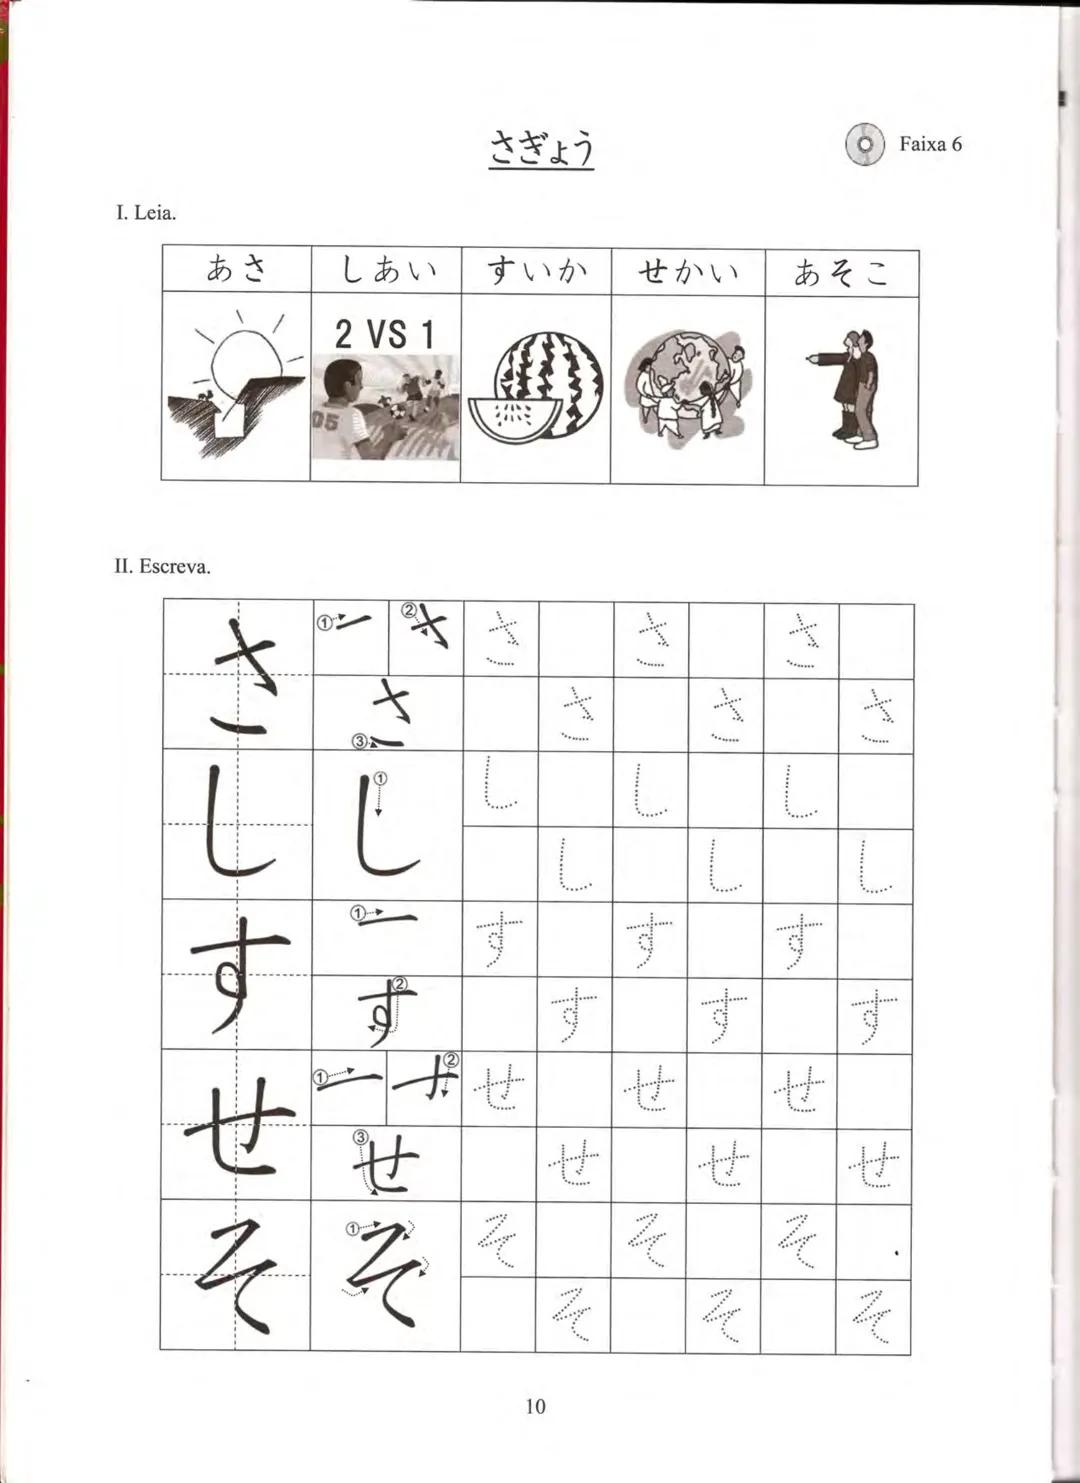 さぎょう
Faixa 6
I. Leia.
あさ しあい すいか せかい あそこ
2 VS 1
05
II. Escreva.
さ ① ② さ さ さ さ
③ さ さ さ さ
し ① し し し し
し し し
す ① す す す
② す す す す
せ ① ② せ せ せ
③ せ せ せ せ
そ ① そ そ そ そ
そ そ そ
10